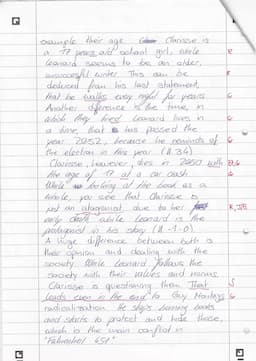 example their age. Clarisse is
a 17 years old school girl, while
Leonard seems to be an older,
unsuccessful writer. This can be
deduced from his last statement,
that he walks every night for years.
Another difference is the time, in
which they lived. Leonard lives in
a time, that has passed the
year 2052, because he reminds of
the election in this year. (ll. 34)
Clarisse, however, dies in 2050 with
the age of 17 of a car crash.
While looking at the book as a
whole, you see that Clarisse is
just an, due to her
early death, while Leonard is the
protagonist in his story (ll. 1-0).
A huge difference between both is
their opinion and dealing with the
society. While Leonard follows the
society with their values and norms,
Clarisse is questioning them. That
leads even in the end to Guy Montags
radicalization. He stops burning books
and starts to protect and hide those,
which is the main conflict in
"Fahrenheit 451".